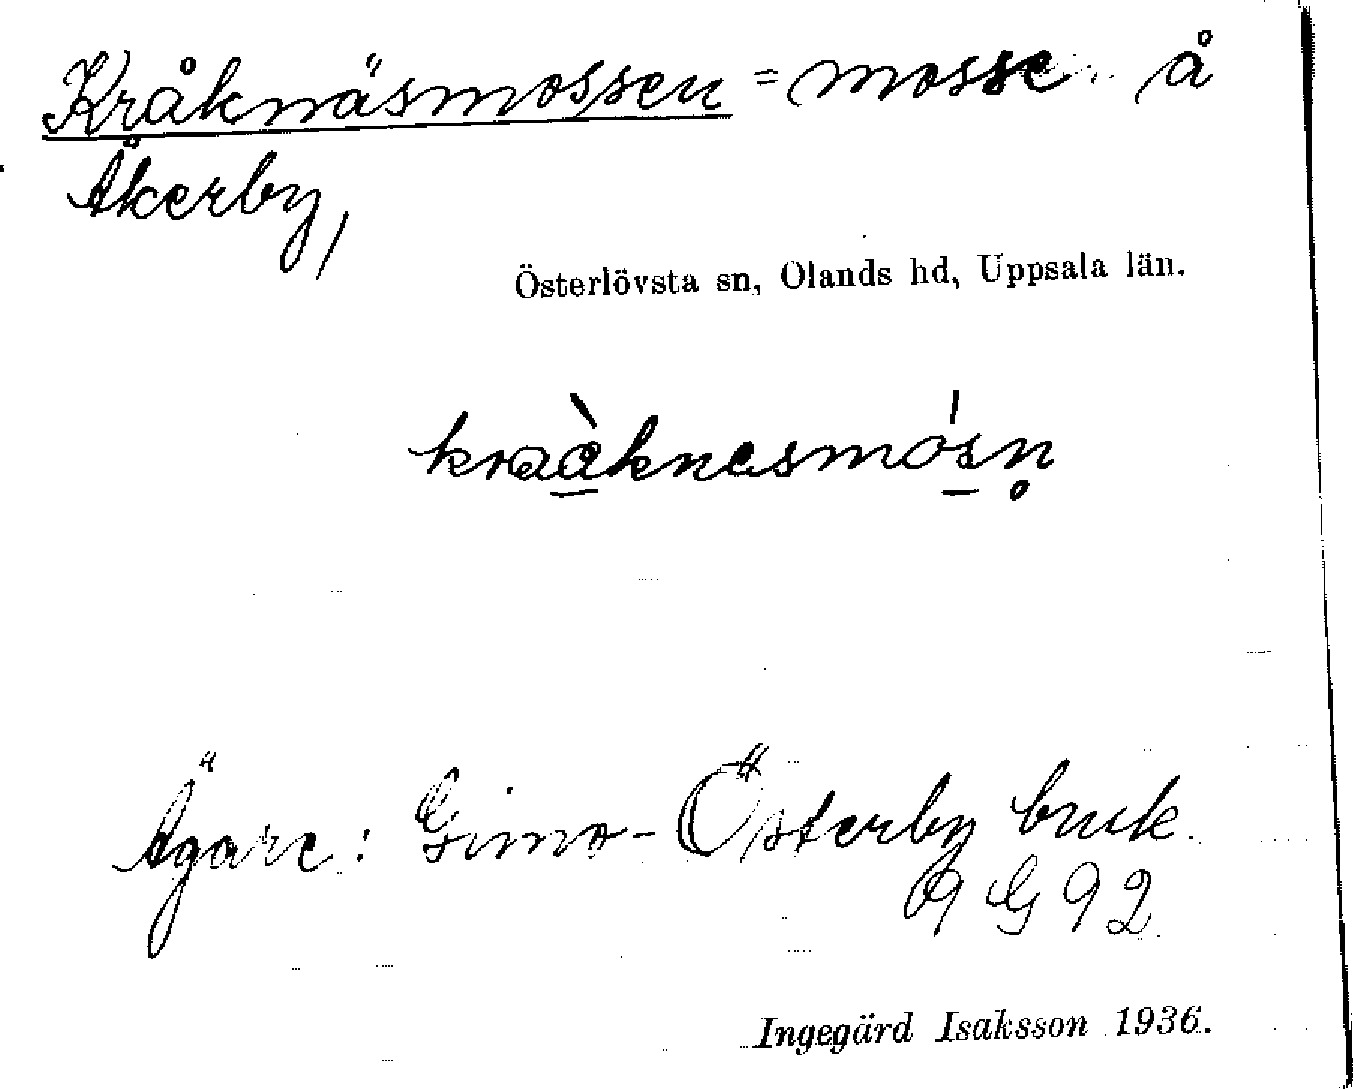 Kråknäsmossen = mosse å
Åkerby,
Österlövsta sn, Olands hd, Uppsala län.
kraàknesmósn̥
Ägare: Gimo-Österby bruk.
9 G 9 2
Ingegärd Isaksson 1936.